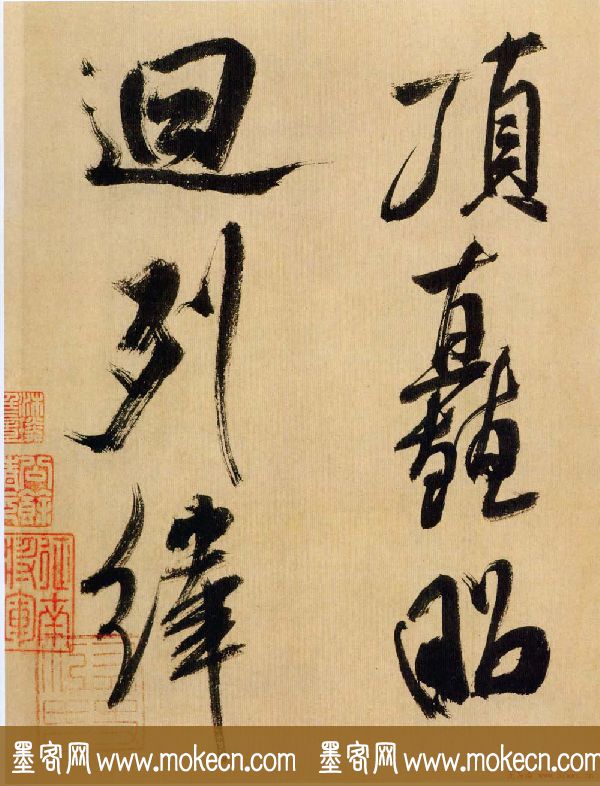 頂矗昭
迴列緯
征南
將軍
墨客网 www.mokecn.com 墨客网 www.mokecn.com